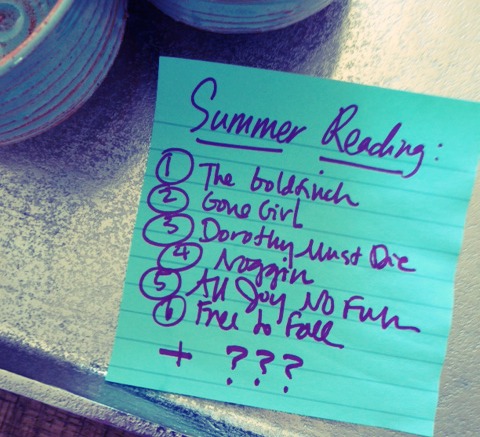 Summer Reading:
① The Goldfinch
② Gone Girl
③ Dorothy Must Die
④ Noggin
⑤ All Joy No Fun
⑥ Free to Fall
+ ???